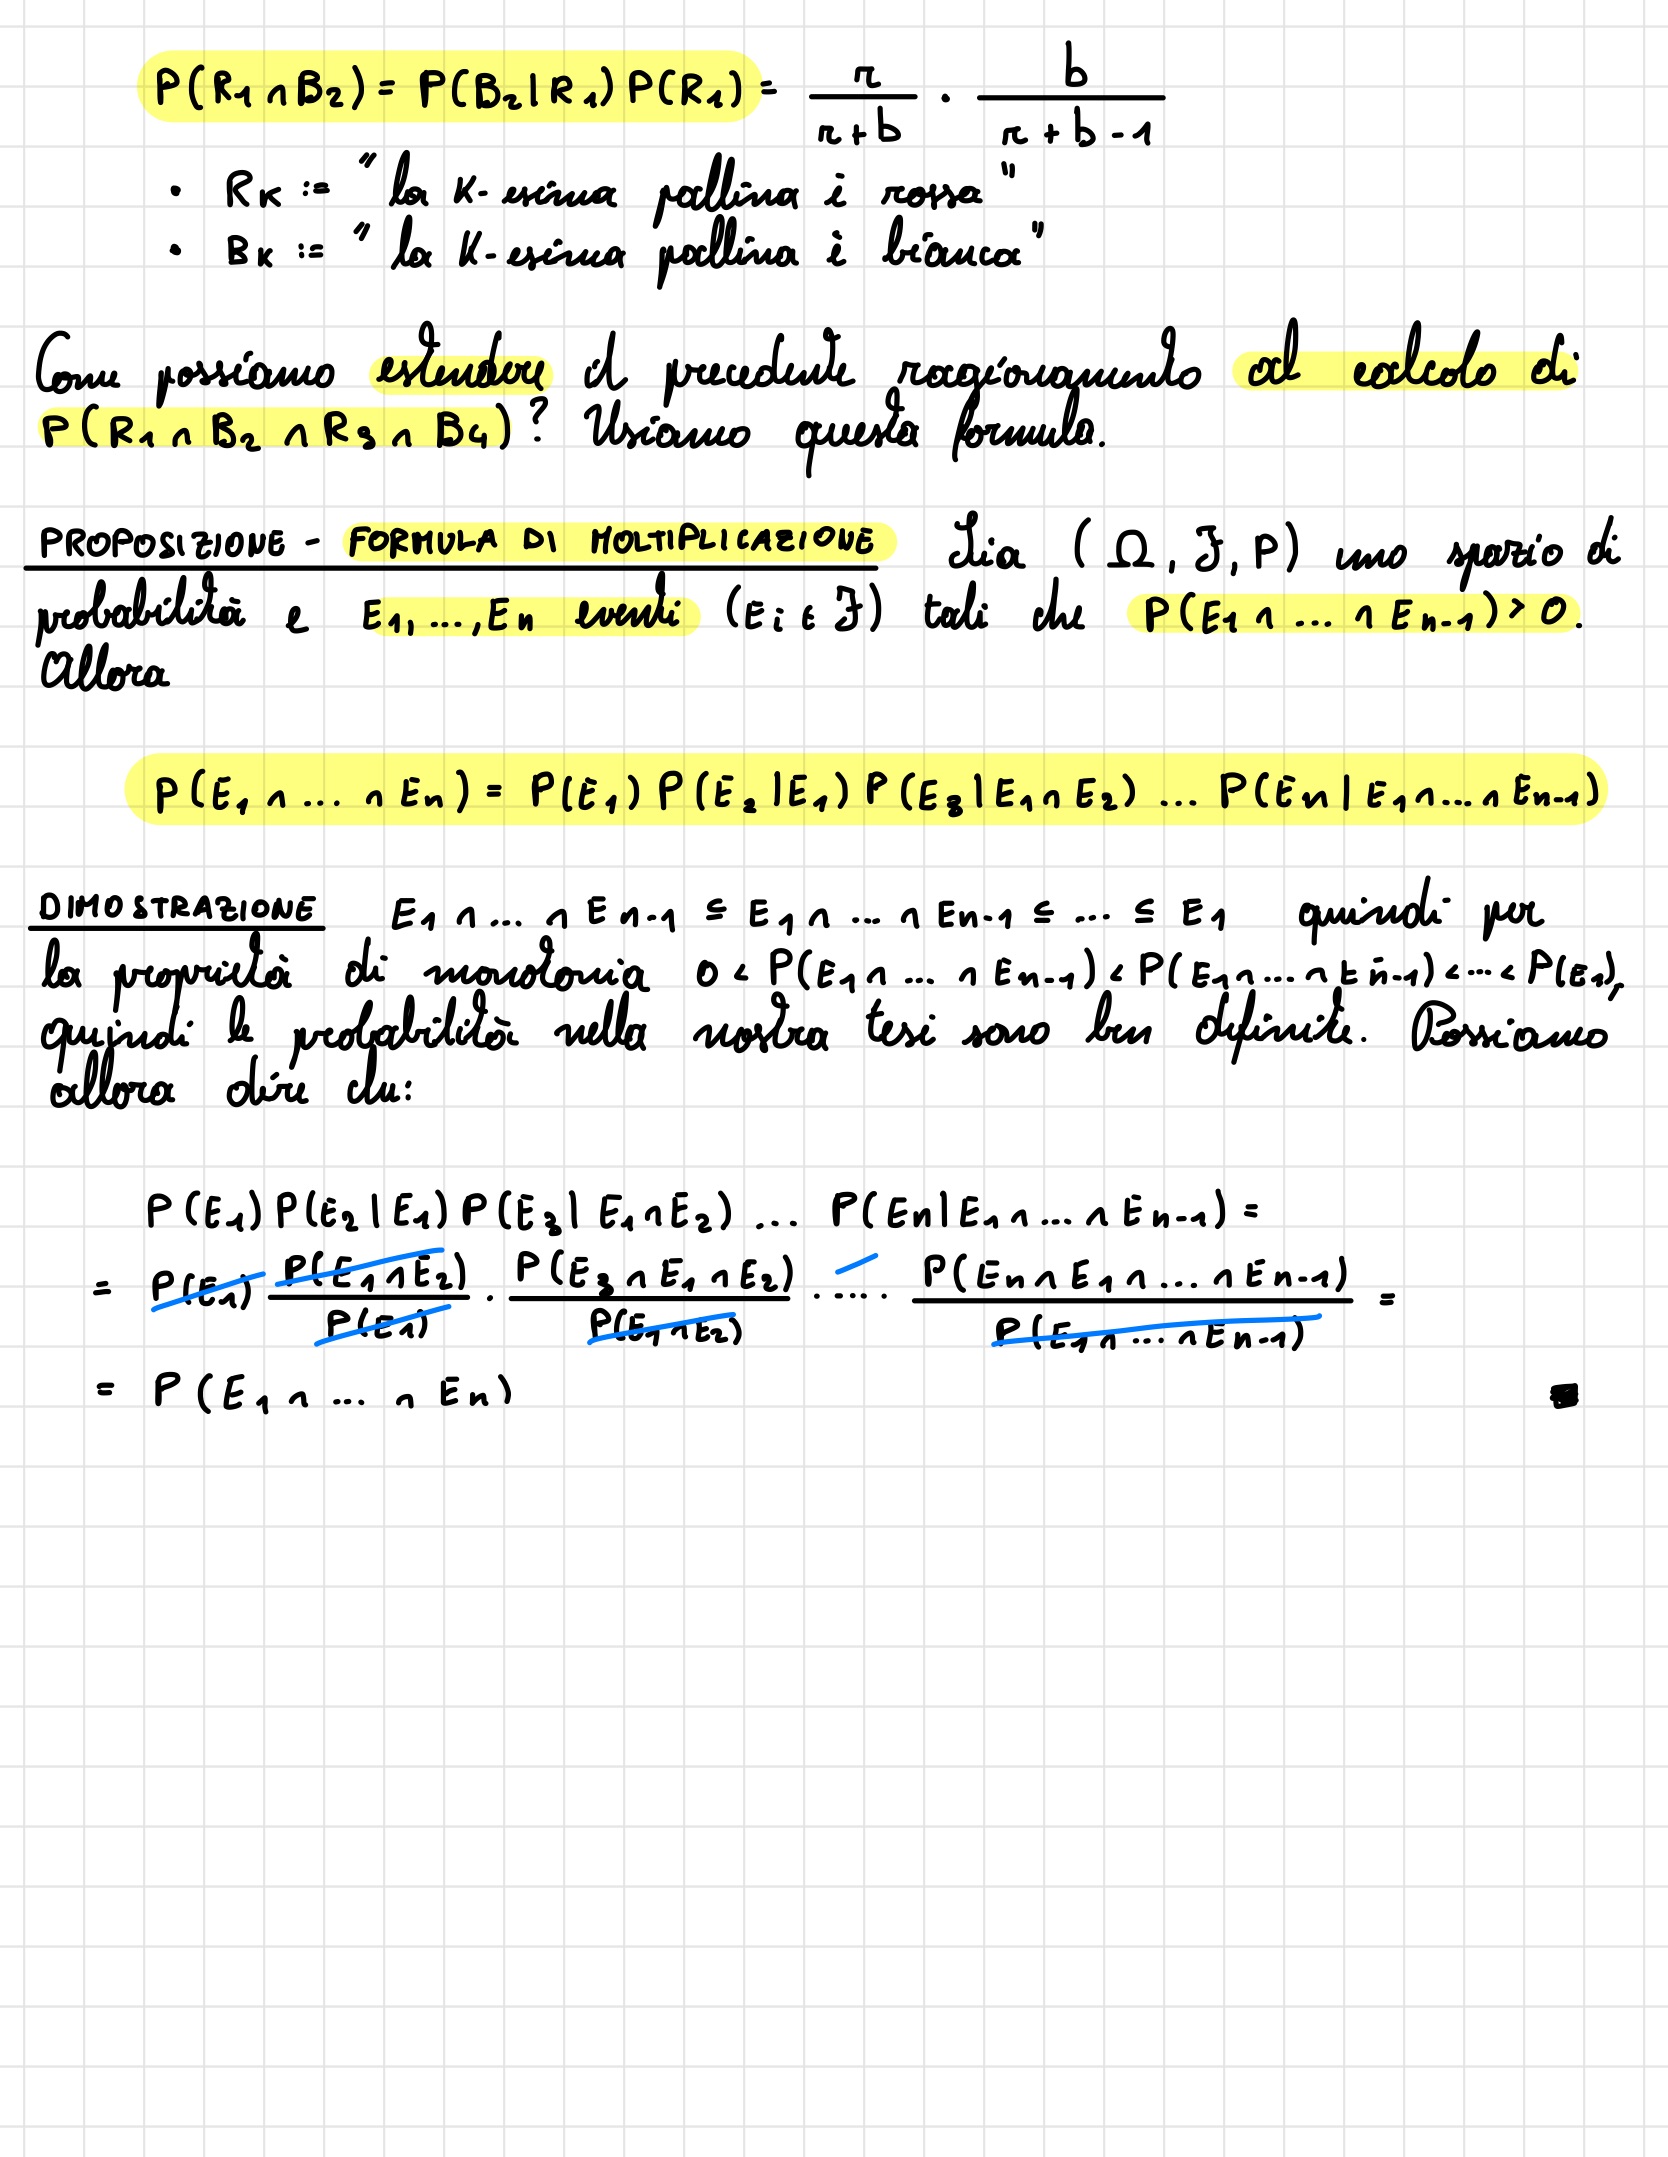 P(R₁ ∩ B₂) = P(B₂|R₁) P(R₁) = r/(r+b) · b/(r+b-1)
• Rₖ := "la K-esima pallina è rossa"
• Bₖ := "la K-esima pallina è bianca"
Come possiamo estendere il precedente ragionamento al calcolo di
P(R₁ ∩ B₂ ∩ R₃ ∩ B₄)? Usiamo questa formula.
PROPOSIZIONE - FORMULA DI MOLTIPLICAZIONE Sia (Ω, ℱ, P) uno spazio di
probabilità e E₁, ..., Eₙ eventi (Eᵢ ∈ ℱ) tali che P(E₁ ∩ ... ∩ Eₙ₋₁) > 0.
Allora
P(E₁ ∩ ... ∩ Eₙ) = P(E₁) P(E₂|E₁) P(E₃|E₁∩E₂) ... P(Eₙ|E₁∩...∩Eₙ₋₁)
DIMOSTRAZIONE E₁ ∩ ... ∩ Eₙ₋₁ ⊆ E₁ ∩ ... ∩ Eₙ₋₁ ⊆ ... ⊆ E₁ quindi per
la proprietà di monotonia 0 < P(E₁ ∩ ... ∩ Eₙ₋₁) < P(E₁∩...∩Eₙ₋₁) < ... < P(E₁),
quindi le probabilità nella nostra tesi sono ben definite. Possiamo
allora dire che:
P(E₁) P(E₂|E₁) P(E₃|E₁∩E₂) ... P(Eₙ|E₁∩...∩Eₙ₋₁) =
= P(E₁) P(E₁∩E₂)/P(E₁) · P(E₃∩E₁∩E₂)/P(E₁∩E₂) ..... P(Eₙ∩E₁∩...∩Eₙ₋₁)/P(E₁∩...∩Eₙ₋₁) =
= P(E₁ ∩ ... ∩ Eₙ) ■